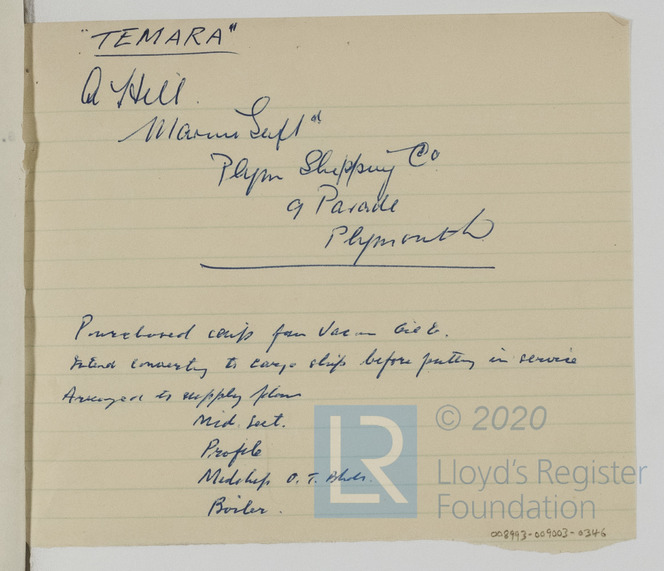 "TEMARA"
A Hill.
Marine Supt
Plym Shipping Co
9 Parade
Plymouth
Purchased ship from Vacuum Oil Co.
Intend converting to cargo ship before putting in service
Arranged to supply plans
Mid. Sect.
Profile
Midships O.T. Bhds.
Boiler.
LR
© 2020
Lloyd's Register
Foundation
008993-009003-0346